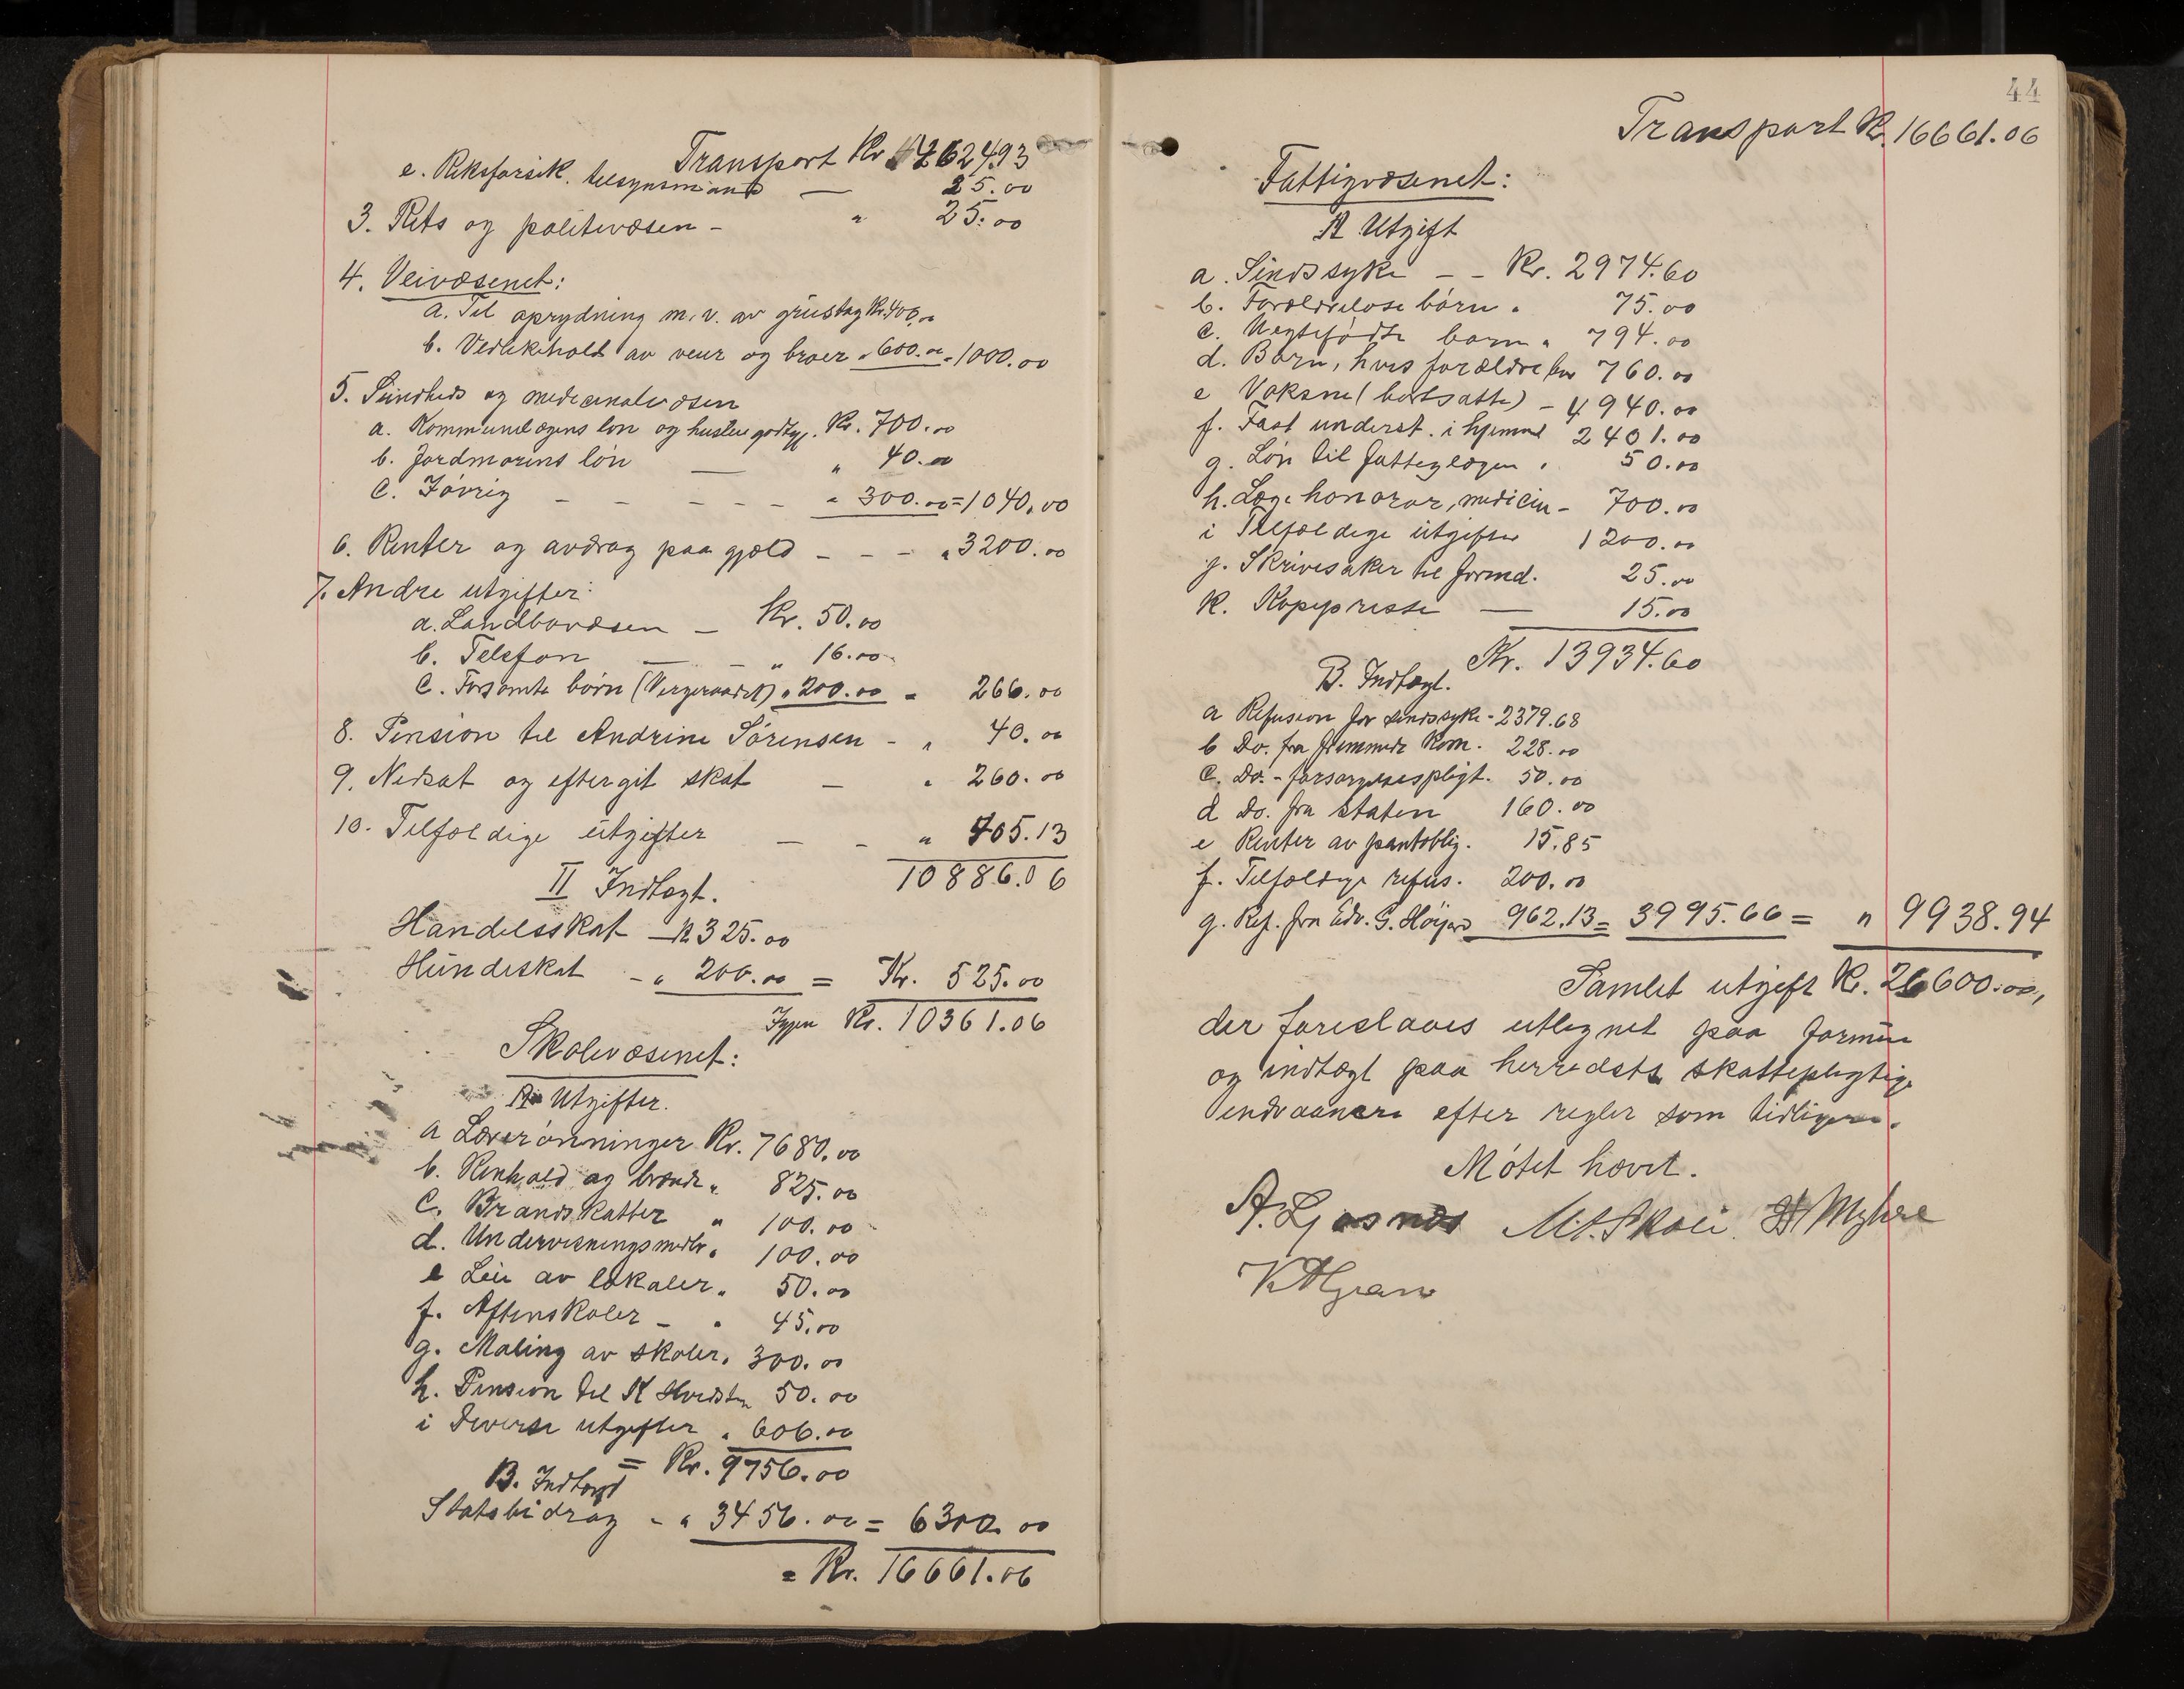 Transport Kr 4624.93
e. Riksforsik. tilsynsmand — 25.00
3. Rets og politivæsen - " 25.00
4. Veivæsenet:
a. Til oprydning m.v. av grustag Kr. 400.00
b. Vedlikehold av veier og broer " 600.00 = 1000.00
5. Sundheds og medicinalvæsen
a. Kommunelægens løn og husleiegodtgj. Kr. 700.00
b. Jordmorens løn — " 40.00
c. Iøvrig - - - - - " 300.00 = 1040.00
6. Renter og avdrag paa gjæld - - - " 3200.00
7. Andre utgifter:
a. Landbovæsen - Kr. 50.00
b. Telefon — - " 16.00
c. Forsømte børn (Vergeraadet) " 200.00 = 266.00
8. Pension til Andrine Sørensen - " 40.00
9. Nedsat og eftergit skat — " 260.00
10. Tilfældige utgifter — - " 405.13
10886.06
II Indtægt.
Handelsskat - Kr 325.00
Hundeskat - " 200.00 = Kr. 525.00
Igjen Kr. 10361.06
Skolevæsenet:
A Utgifter.
a Lærerlønninger Kr. 7680.00
b. Renhold og brænde " 825.00
c. Brandskatter " 100.00
d. Undervisningsmidler " 100.00
e Leie av lokaler " 50.00
f. Aftenskoler - " 45.00
g. Maling av skoler " 300.00
h. Pension til K Hvidsten 50.00
i Diverse utgifter " 606.00
= Kr. 9756.00
B. Indtægt
Statsbidrag - " 3456.00 = 6300.00
= Kr. 16661.06
44
Transport Kr. 16661.06
Fattigvæsenet:
A Utgift
a. Sindssyke - - Kr. 2974.60
b. Forældreløse børn " 75.00
c. Uegtefødte barn " 794.00
d. Børn, hvis forældre lev 760.00
e Voksne (bortsatte) - 4940.00
f. Fast underst. i hjemmet 2401.00
g. Løn til fattiglægen " 50.00
h. Læge honorar, medicin - 700.00
i Tilfældige utgifter 1200.00
j. Skrivesaker til formd. 25.00
k. Kopipresse — 15.00
Kr. 13934.60
B. Indtægt.
a Refusion for sindssyke - 2379.68
b Do. fra fremmede Kom. 228.00
c. Do. - forsørgelsespligt. 50.00
d Do. fra staten 160.00
e Renter av pantoblig. 15.85
f. Tilfældige refus. 200.00
g. Ref. fra Edv. G. 962.13 = 3995.66 = " 9938.94
Samlet utgift Kr. 26600.00,
der foreslaaes utlignet paa formue
og indtægt paa herredets skattepligtige
indvaanere efter regler som tidligere.
Møtet hævet.
A. Ljosnæs M. Skoli H Myhre
K Gran